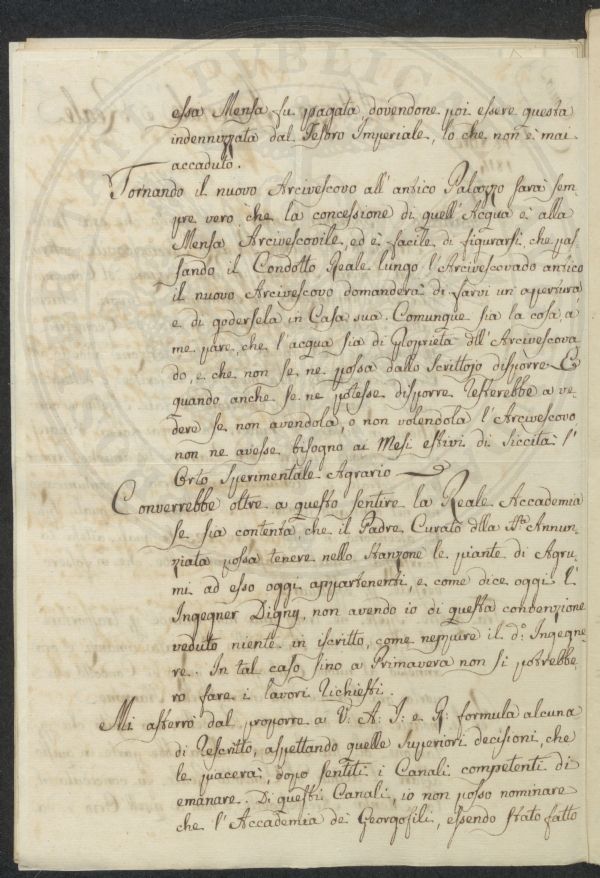 essa Mensa fu pagata, dovendone poi essere questa
indennizzata dal Tesoro Imperiale, lo che non è mai
accaduto.
Tornando il nuovo Arcivescovo all'antico Palazzo sarà sem-
pre vero che la concessione di quell'Acqua è alla
Mensa Arcivescovile, ed è facile di figurarsi, che pas-
sando il Condotto Reale lungo l'Arcivescovado antico
il nuovo Arcivescovo domanderà di farvi un'apertura
e di godersela in Casa sua. Comunque sia la cosa, a
me pare, che l'acqua sia di Proprietà dell'Arcivescova-
do, e che non se ne possa dallo Scrittojo disporre. E
quando anche se ne potesse disporre resterebbe a ve-
dere se non avendola, o non volendola l'Arcivescovo
non ne avesse bisogno ai Mesi estivi di Siccità l'
Orto Sperimentale Agrario
Converrebbe oltre a questo sentire la Reale Accademia
se sia contenta che il Padre Curato della SS.ma Annun-
ziata possa tenere nello Stanzone le piante di Agru-
mi ad esso oggi appartenenti, e come dice oggi l'
Ingegner Digny, non avendo io di questa convenzione
veduto niente in iscritto, come neppure il d.o Ingegne-
re. In tal caso fino a Primavera non si potrebbe-
ro fare i lavori richiesti.
Mi asterrò dal proporre a V. A. I. e R. formula alcuna
di Rescritto, aspettando quelle Superiori decisioni, che
le piacerà, dopo sentiti i Canali competenti di
emanare. Di questi Canali, io non posso nominare
che l'Accademia de Georgofili, essendo stato fatto